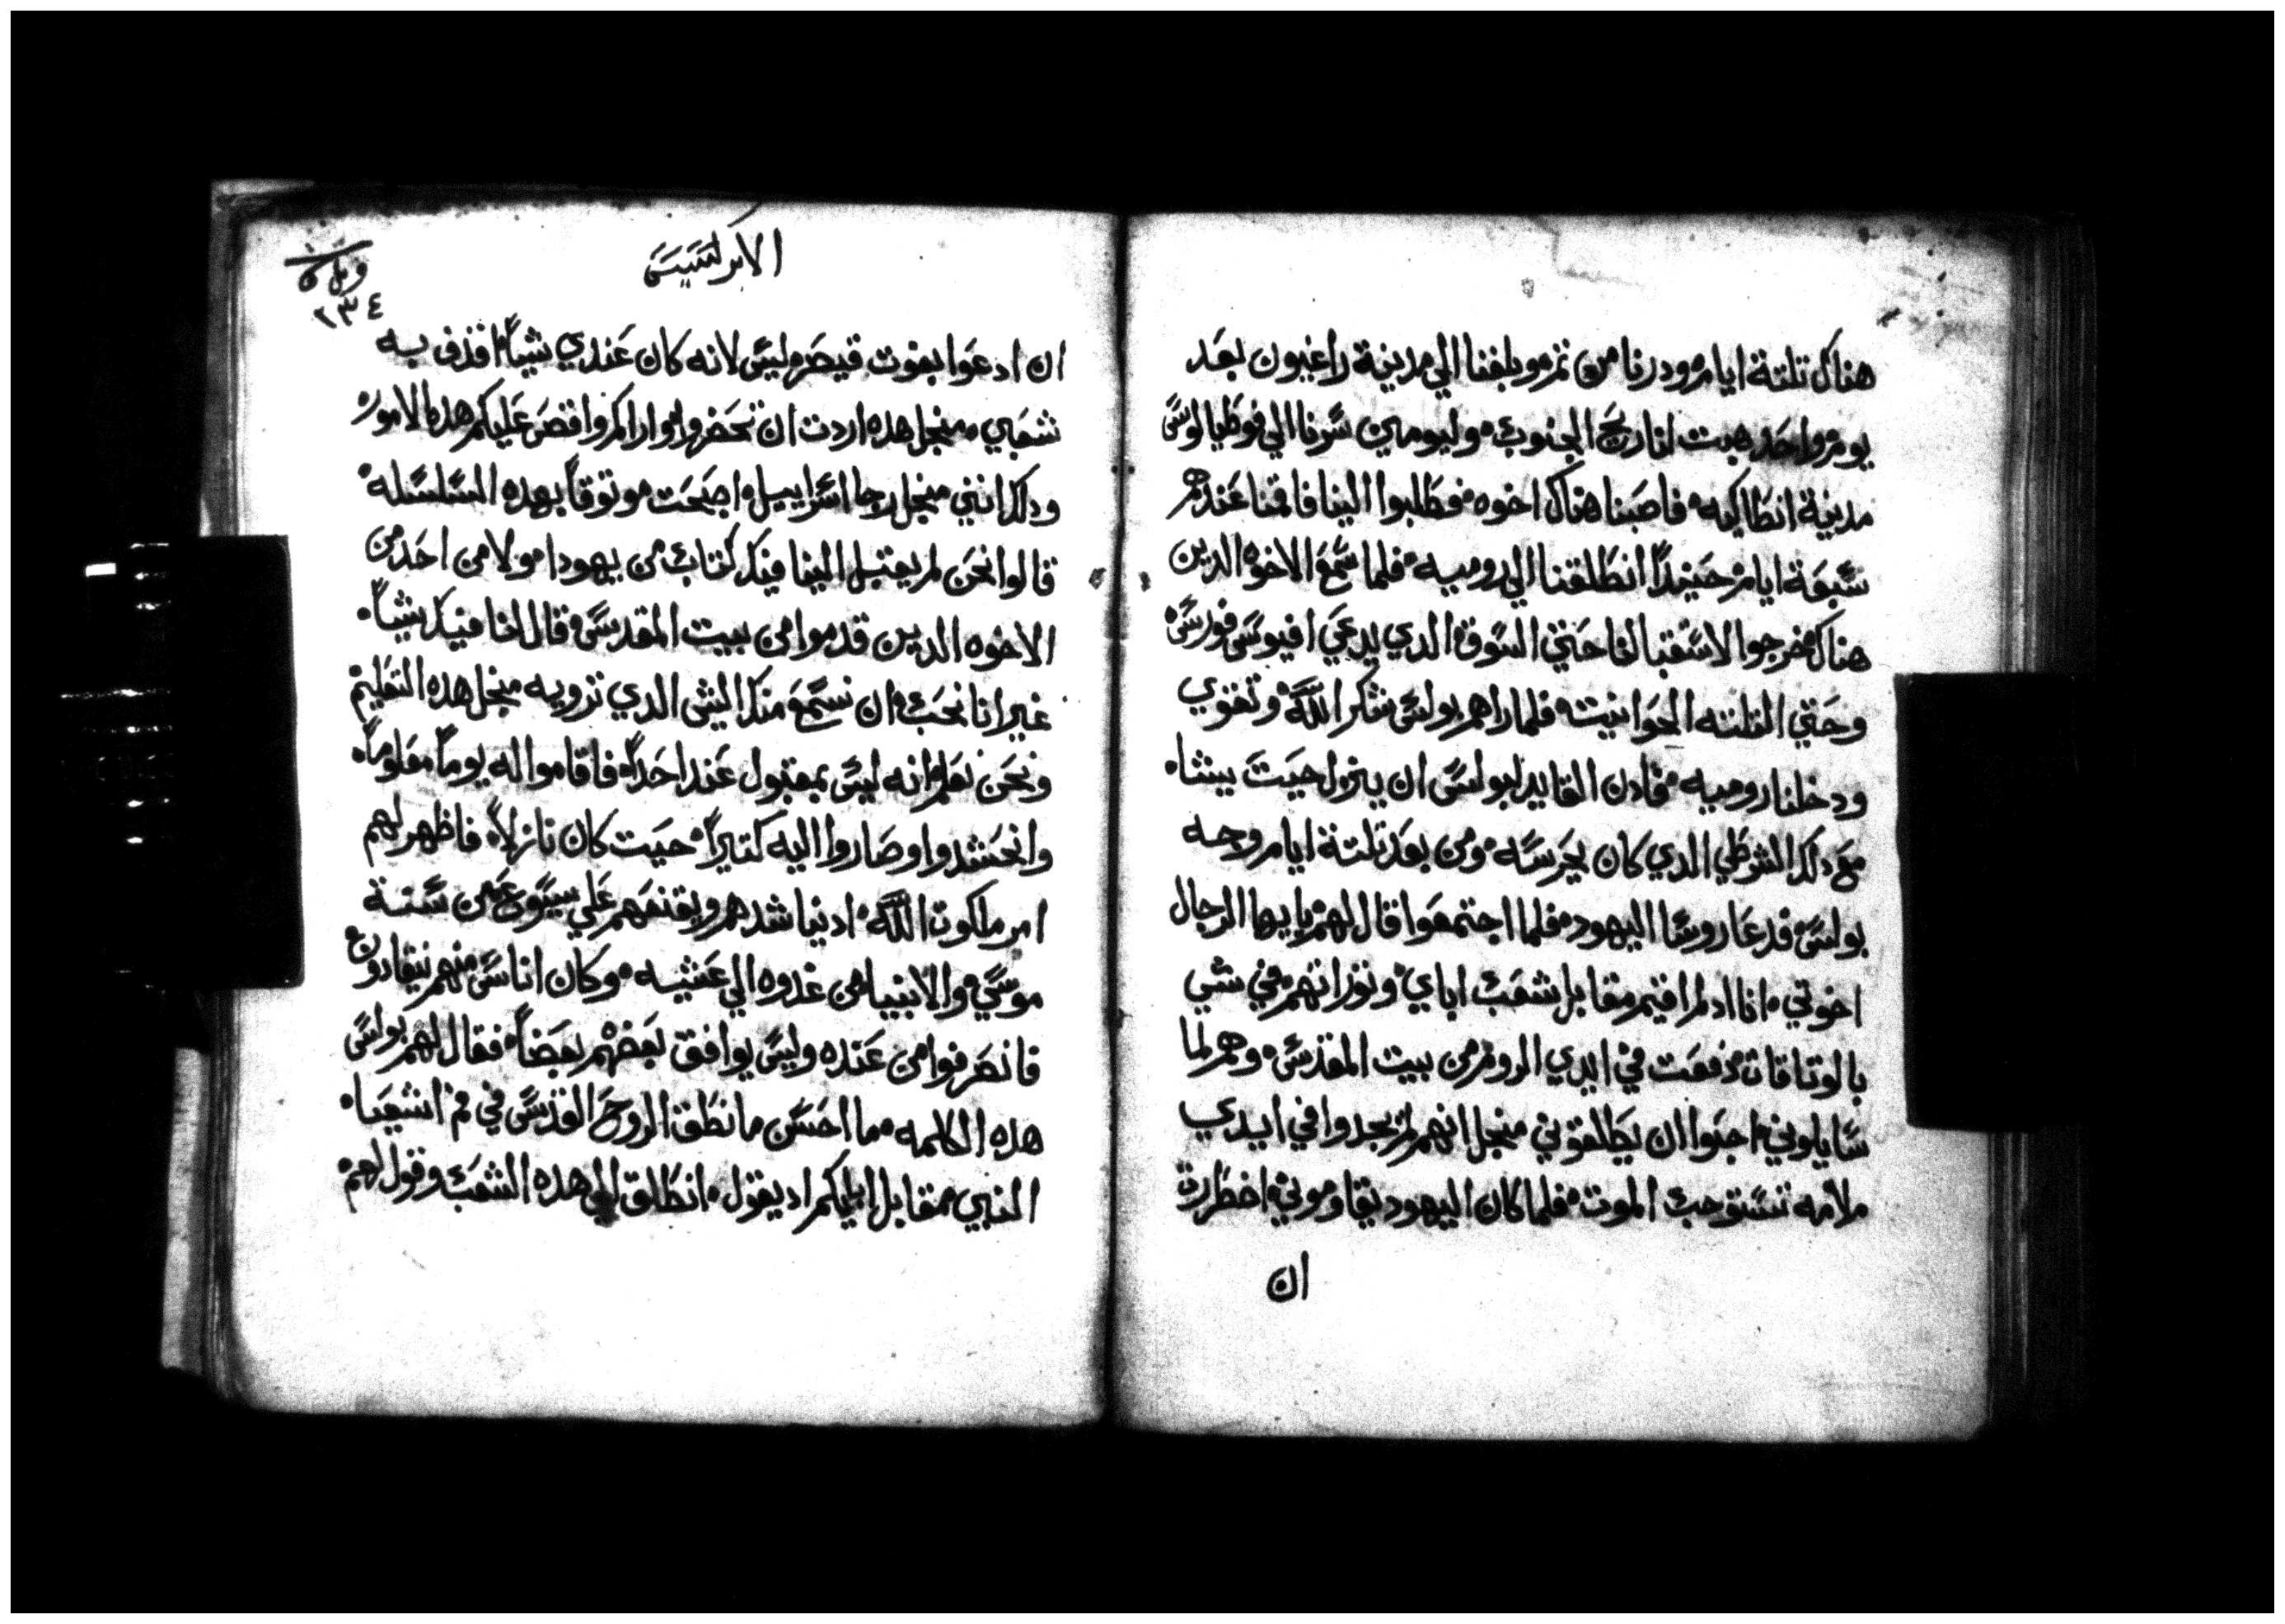 هناك تلتة ايام ودرنا من تم وبلغنا الي مدينة راغيون بعد
يوم واحد هبت لنا ريح الجنوب وليومين سرنا الي فوطيالوس
مدينة انطاكيه فاصبنا هناك اخوه فطلبوا الينا فاقمنا عندهم
سبعة ايام حينيدا انطلقنا الي روميه فلما سمع الاخوه الدين
هناك خرجوا لاستقبالنا حتي السوق الدي يدعي افيوس فورس
وحتي التلته الحوانيت فلما راهم بولس شكر الله وتقوي
ودخلنا روميه فادن القايد لبولس ان ينزل حيت يشاء
مع دلك الشرطي الدي كان يحرسه ومن بعد تلتة ايام وجه
بولس فدعا روسا اليهود فلما اجتمعوا قال لهم يا يها الرجال
اخوتي انا اد لم اقيم مقابل شعب اباي وتوراتهم في شي
بالوتاقات دفعت في ايدي الروم من بيت المقدس وهم لما
سايلوني احبوا ان يطلقوني منجل انهم لم يجدوا في ايدي
ملامه تستوجب الموت فلما كان اليهود يقاوموني اضطررت
ان
الابركسيس
٢٣٤
ان ادعوا بغوت قيصر ليس لانه كان عندي شيا اقذف به
شعبي منجل هده اردت ان تحضروا واراكم واقص عليكم هده الامور
ودلك انني منجل رجا اسراييل اصبحت موتوقا بهده السلسله
قالوا نحن لم يقتبل الينا فيك كتاب من يهودا ولا من احد من
الاخوه الدين قدموا من بيت المقدس قال لنا فيك شيا
غير انا نحب ان نسمع منك الشي الدي ترويه منجل هده التعليم
ونحن نعلم انه ليس بمقبول عند احدا فاقاموا له يوما معلوما
وانحشدوا وصاروا اليه كتيرا حيت كان نازلا فاظهر لهم
امر ملكوت الله اد يناشدهم ويقنعهم علي يسوع من سنة
موسي والانبيا من غدوه الي عشيه وكان اناس منهم ينقادون
فانصرفوا من عنده وليس يوافق بعضهم بعضا فقال لهم بولس
هده الكلمه ما احسن ما نطق الروح القدس في فم اشعيا
النبي مقابل ابايكم اد يقول انطلق الي هده الشعب وقول لهم